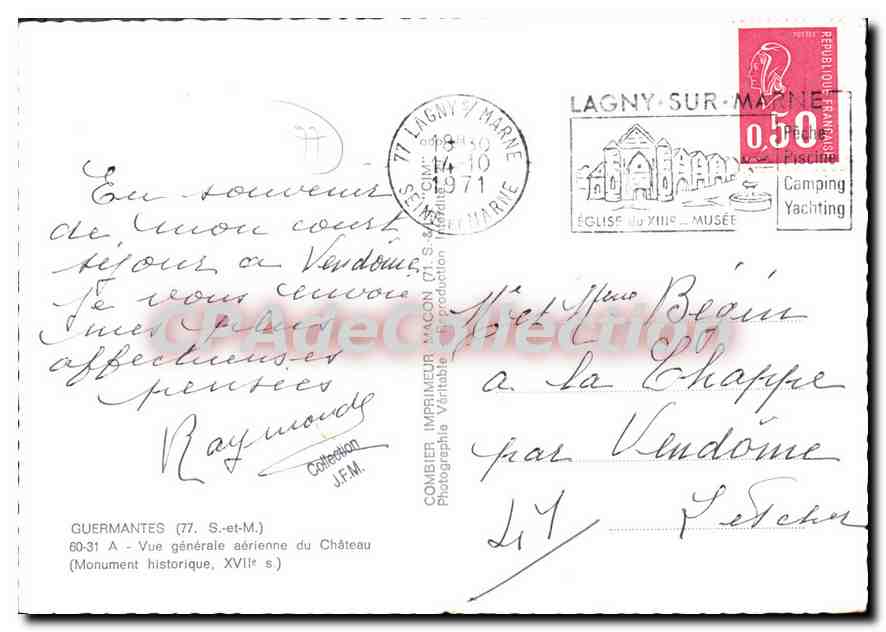 En souvenir
de mon court
séjour a Vendôme
je vous envoie
mes plus
affectueuses
pensées
Raymonde
Collection
J.F.M.
GUERMANTES (77. S.-et-M.)
60-31 A - Vue générale aérienne du Château
(Monument historique, XVIIe s.)
COMBIER IMPRIMEUR MACON (71. S.-&-L.) "CIM"
Photographie Véritable - Reproduction Interdite
77 LAGNY S/ MARNE
18H30
14-10
1971
SEINE ET MARNE
LAGNY-SUR-MARNE
ÉGLISE du XIIIe - MUSÉE
Pêche
Piscine
Camping
Yachting
POSTES
RÉPUBLIQUE FRANÇAISE
0,50
Mr et Mme Bégin
a la Chappe
par Vendôme
41
CPAdeCollection
77